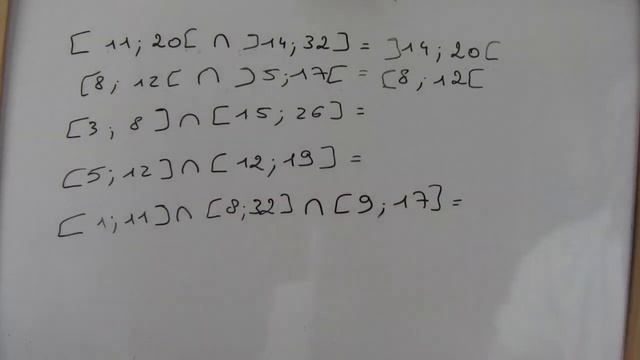 [ 11 ; 20 [ ∩ ] 14 ; 32 ] = ] 14 ; 20 [
[ 8 ; 12 [ ∩ ] 5 ; 17 [ = [ 8 ; 12 [
[ 3 ; 8 ] ∩ [ 15 ; 26 ] =
[ 5 ; 12 ] ∩ [ 12 ; 19 ] =
[ 1 ; 11 ] ∩ [ 8 ; 32 ] ∩ [ 9 ; 17 ] =